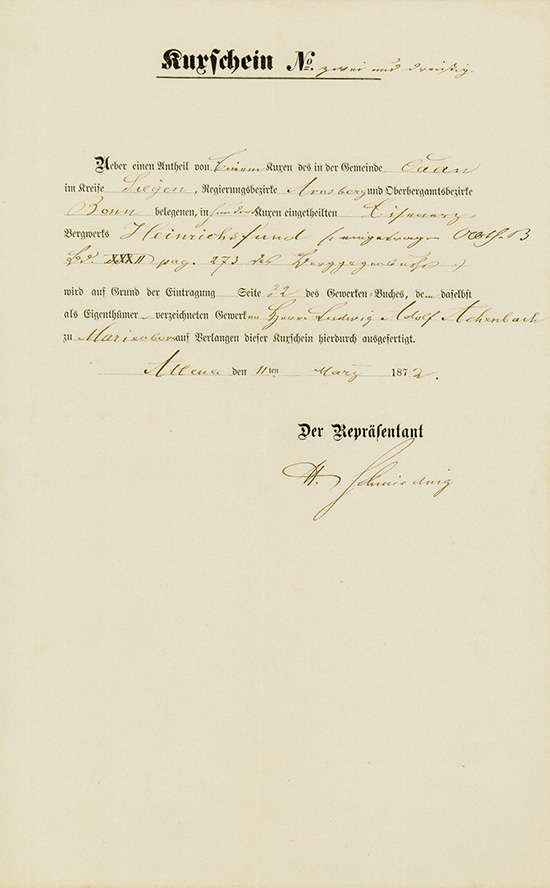 Kuxschein No. zwei und dreißig.
Ueber einen Antheil von Einem Kuxen des in der Gemeinde Caan
im Kreise Siegen, Regierungsbezirke Arnsberg und Oberbergamtsbezirke
Bonn belegenen, in hundert Kuxen eingetheilten Eisenerz
Bergwerks Heinrichsfund (eingetragen Abth. B
Bd. XXXII pag. 273 des Berggegenbuchs :)
wird auf Grund der Eintragung Seite 32 des Gewerken-Buches, de... daselbst
als Eigenthümer verzeichneten Gewerken Herrn Ludwig Adolf Achenbach
zu Marienborn auf Verlangen dieser Kuxschein hierdurch ausgefertigt.
Altena den 11ten März 1872.
Der Repräsentant
H. Schmiedwig